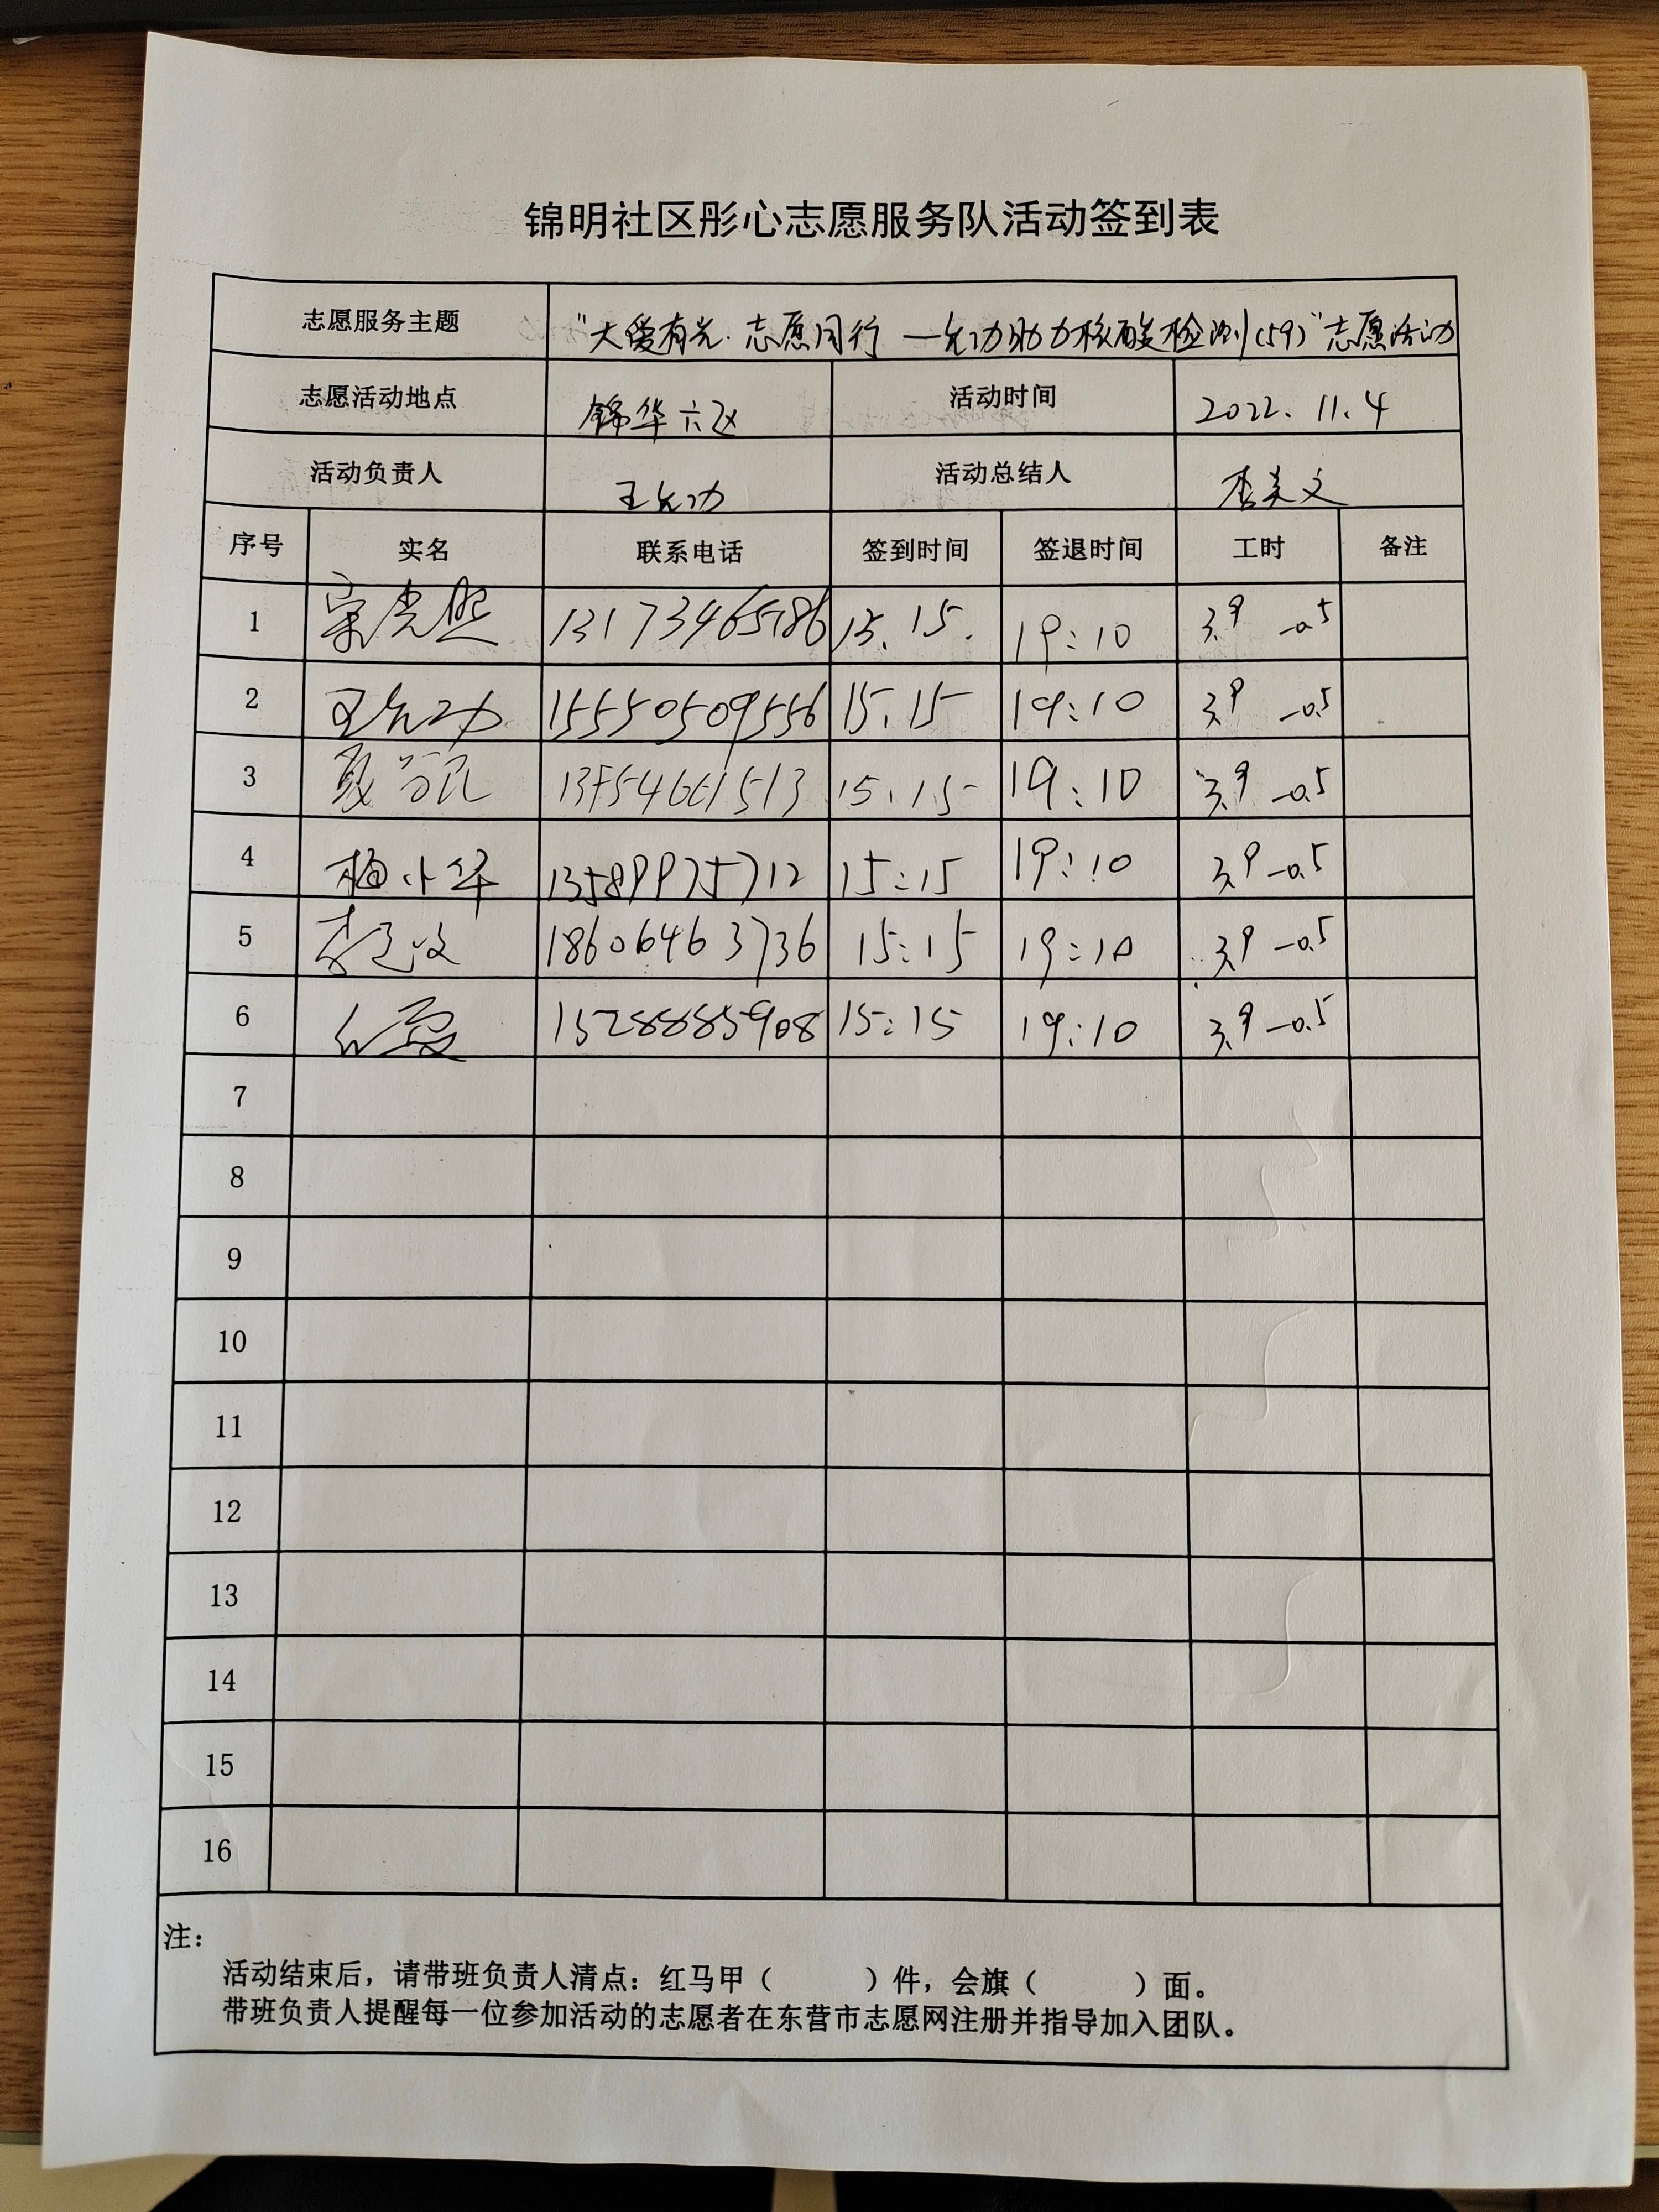 锦明社区彤心志愿服务队活动签到表
志愿服务主题 "大爱有光·志愿同行—允功助力核酸检测(59)"志愿活动
志愿活动地点 锦华六区 活动时间 2022.11.4
活动负责人 王允功 活动总结人 李美文
序号 实名 联系电话 签到时间 签退时间 工时 备注
1 13173465186 15.15. 19:10 3.9 -0.5
2 王允功 15550509556 15.15 19:10 3.9 -0.5
3 15.15 19:10 3.9 -0.5
4 梅小华 13589975712 15:15 19:10 3.9 -0.5
5 18606463736 15:15 19:10 3.9 -0.5
6 15288885908 15:15 19:10 3.9 -0.5
7
8
9
10
11
12
13
14
15
16
注：
活动结束后，请带班负责人清点：红马甲（ ）件，会旗（ ）面。
带班负责人提醒每一位参加活动的志愿者在东营市志愿网注册并指导加入团队。